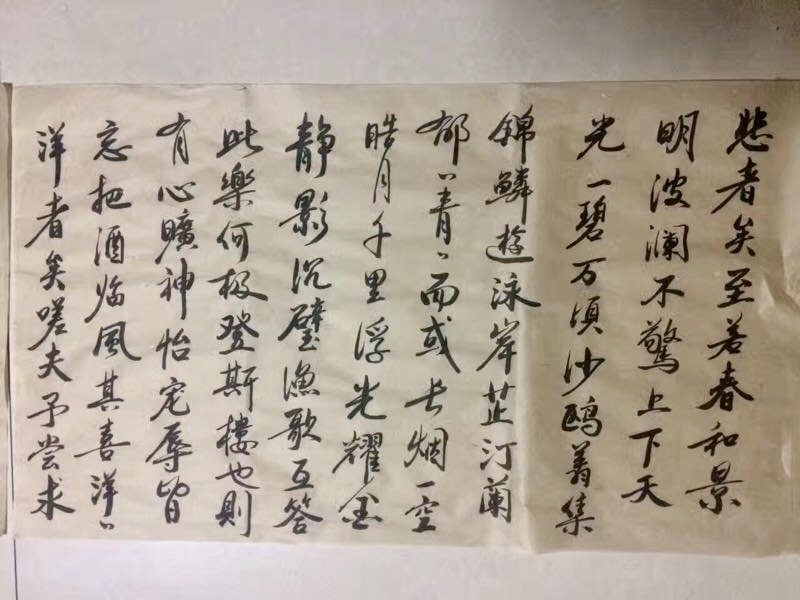 悲者矣至若春和景
明波澜不驚上下天
光一碧万頃沙鸥翔集
錦鱗遊泳岸芷汀蘭
郁〻青〻而或长烟一空
皓月千里浮光耀金
静影沉璧渔歌互答
此樂何极登斯樓也則
有心曠神怡宠辱皆
忘把酒临風其喜洋〻
洋者矣嗟夫予尝求